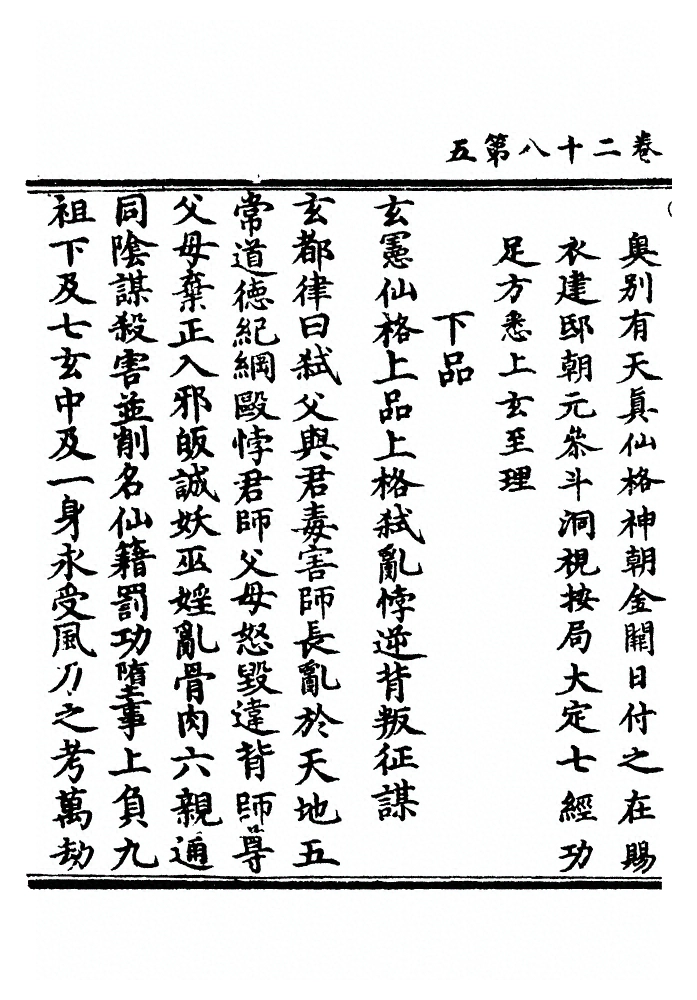 卷二十八第五
奥別有天真仙格神朝金闕日付之在賜
衣建邸朝元叅斗洞視按局大定七經功
足方悉上玄至理
下品
玄憲仙格上品上格弑亂悖逆背叛征謀
玄都律曰弑父與君毒害師長亂於天地五
常道德紀綱毆悖君師父母怒毀違背師尊
父母棄正入邪皈誠妖巫婬亂骨肉六親通
同陰謀殺害並削名仙籍罰功墮事上負九
祖下及七玄中及一身永受風刀之考萬劫